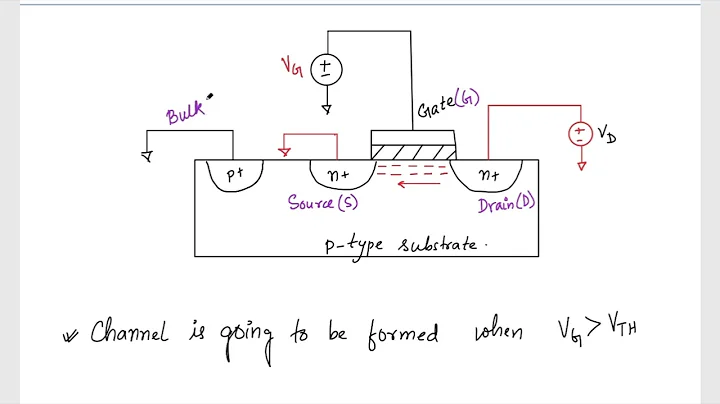 VG
Gate(G)
Bulk
VD
P+
n+
n+
Source(S)
Drain(D)
P-type substrate.
Channel is going to be formed when VG > VTH